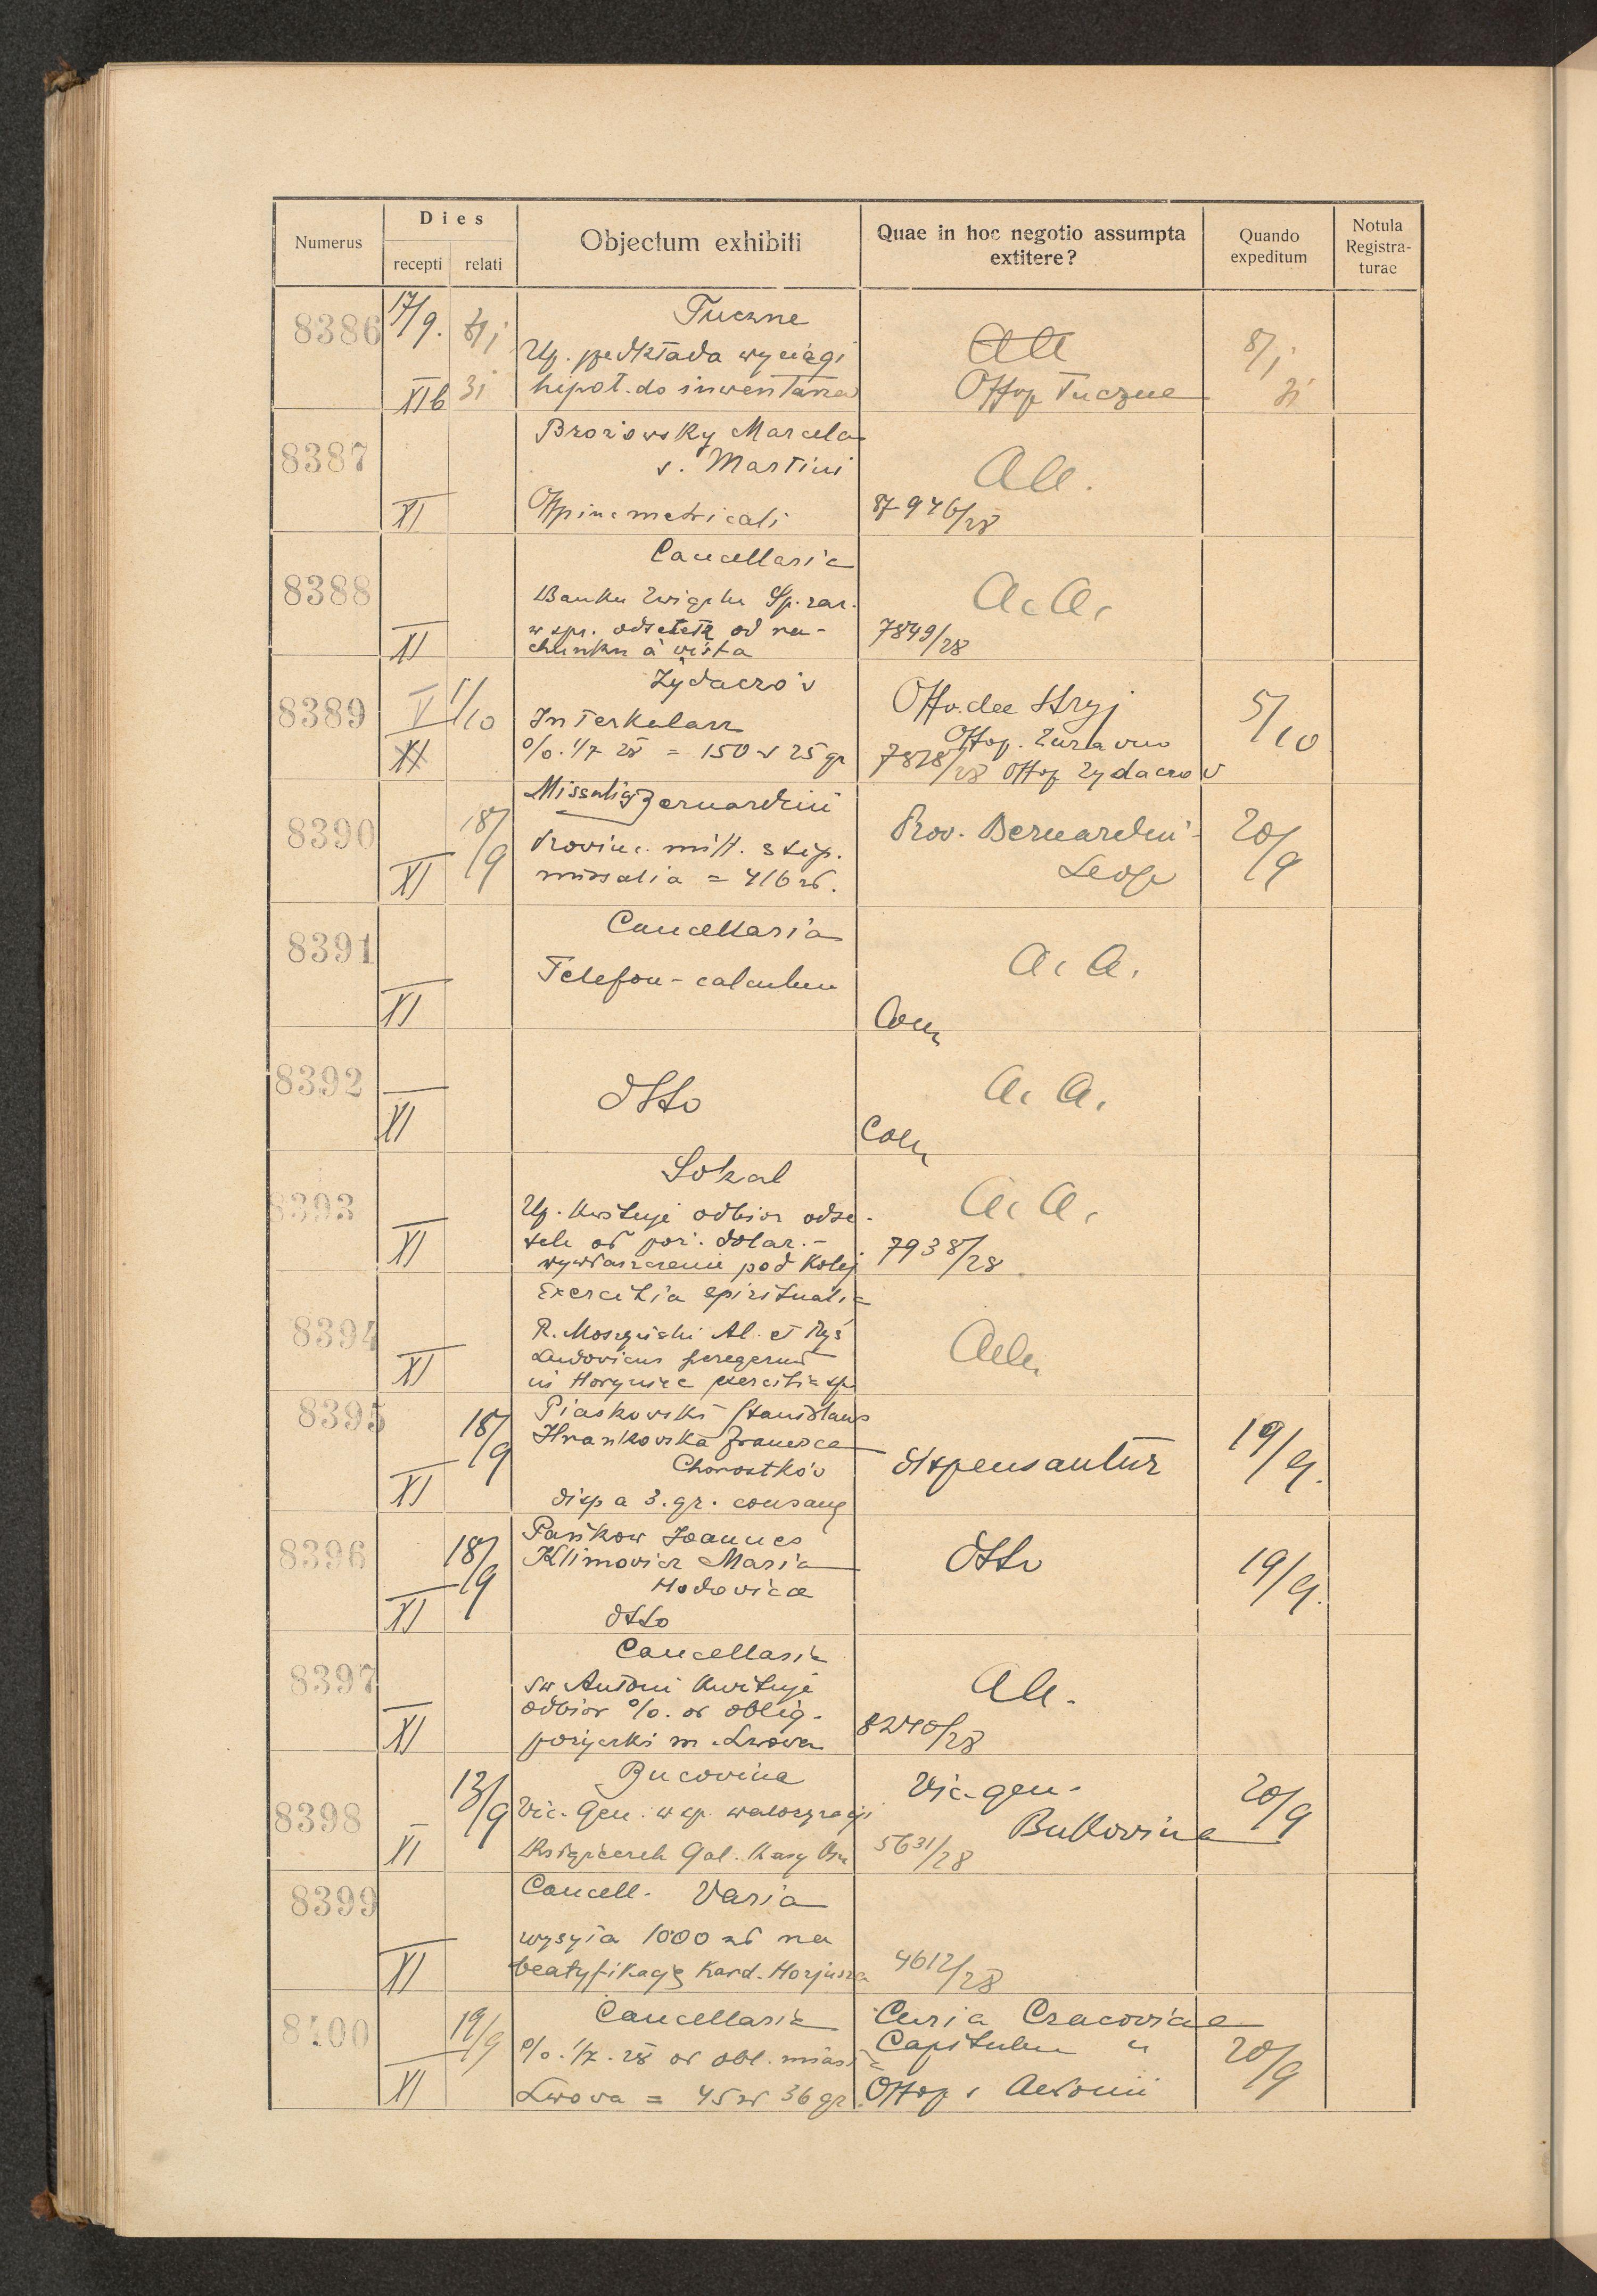 Numerus
Dies
recepti
relati
Objectum exhibiti
Quae in hoc negotio assumpta
extitere?
Quando
expeditum
Notula
Registra-
turae
8386
17/9.
XIb
31
Tuczne
Up. przedkłada wyciągi
hipot. do inwentarza
Offop Tuczne
8/1
31
8387
XI
Brozowsky Marcela
s. Martini
Offpin. metricali
Aa.
7946/28
8388
XI
Cancellaria
Banku Związku Sp. zar.
w spr. odsetek od ra-
chunku à vista
a. a.
7849/28
8389
V
XI
1/10
Żydaczów
Interkalarz
%. 1/7 28 = 150 zł 25 gr
Offo. dec Stryj
Offop. Żurawno
7828/28 Offop Zydaczow
5/10
8390
XI
18/9
Missalia Bernardini
Provinc. mitt. stip.
missalia = 416 zł.
Prov. Bernardini
Leop
20/9
8391
XI
Cancellaria
Telefon - calculum
a. a.
Com
8392
XI
dtto
a. a.
Com
8393
XI
Sokal
Up. kwituje odbior odse-
tek od poż. dolar. -
wywłaszczenie pod kolej
a. a.
7938/28
8394
XI
Exercitia spiritualia
R. Moszyński Al. et Ryś
Ludovicus peregerunt
in Horyniec exercitia sp
Aa.
8395
XI
18/9
Piaskowski Stanislaus
Hrankowska Francisca
Chorostków
disp a 3. gr. consang
dispensantur
19/9.
8396
XI
18/9
Pańkow Joannes
Klimowicz Maria
Hodovica
dtto
dtto
19/9.
8397
XI
Cancellaria
św Antoni kwituje
odbiór %. od oblig.
pożyczki m. Lwowa
Aa.
8240/28
8398
XI
13/9
Bucovina
Vic. Gen. w sp. waloryzacji
Książeczek Gal. Kasy Osz
Vic. gen.
Bukovina
5631/28
20/9
8399
XI
Cancell. Varia
wysyła 1000 zł na
beatyfikację Kard. Hozjusza
4612/28
8400
XI
19/9
Cancellaria
%. 1/7. 28 od obl. miasta
Lwowa = 45 zł 36 gr.
Curia Cracoviae
Capitulum "
Offop s Antonii
20/9